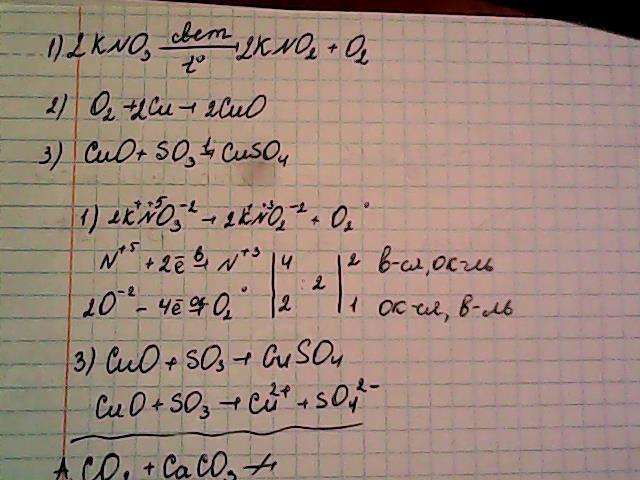 1) 2KNO₃ свет t° 2KNO₂ + O₂
2) O₂ + 2Cu → 2CuO
3) CuO + SO₃ → CuSO₄
1) 2K⁺N⁺⁵O₃⁻² → 2K⁺N⁺³O₂⁻² + O₂°
N⁺⁵ + 2ē в→ N⁺³ | 4 | 2 в-ся, ок-ль
: 2
2O⁻² - 4ē ок→ O₂° | 2 | 1 ок-ся, в-ль
3) CuO + SO₃ → CuSO₄
CuO + SO₃ → Cu²⁺ + SO₄²⁻
+ CaCO₃